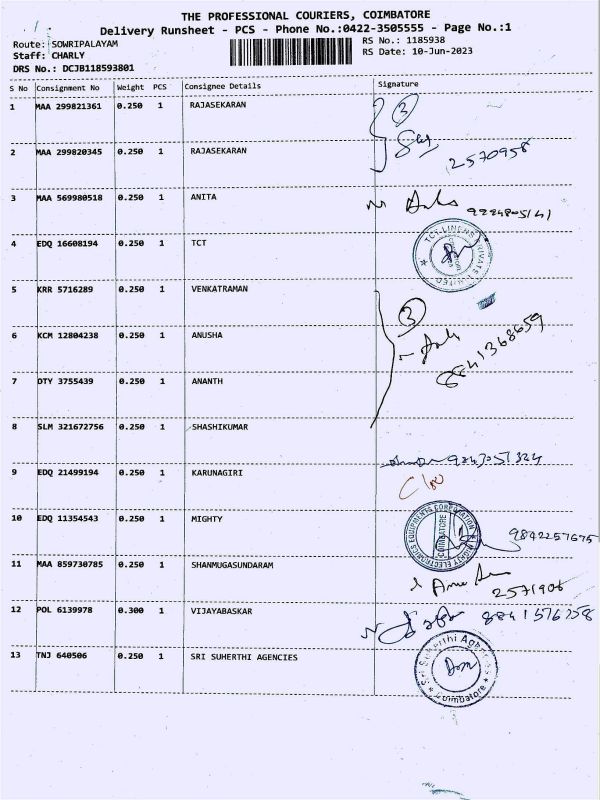 THE PROFESSIONAL COURIERS, COIMBATORE
Delivery Runsheet - PCS - Phone No.:0422-3505555 - Page No.:1
Route: SOWRIPALAYAM
Staff: CHARLY
DRS No.: DCJB118593801
RS No.: 1185938
RS Date: 10-Jun-2023
S No Consignment No Weight PCS Consignee Details Signature
1 MAA 299821361 0.250 1 RAJASEKARAN 3
2 MAA 299820345 0.250 1 RAJASEKARAN 2570958
3 MAA 569980518 0.250 1 ANITA
4 EDQ 16608194 0.250 1 TCT
TCT-LINERS PRIVATE LIMITED
5 KRR 5716289 0.250 1 VENKATRAMAN 3
6 KCM 12804238 0.250 1 ANUSHA 8841368659
7 DTY 3755439 0.250 1 ANANTH
8 SLM 321672756 0.250 1 SHASHIKUMAR
9 EDQ 21499194 0.250 1 KARUNAGIRI
10 EDQ 11354543 0.250 1 MIGHTY 9842257675
MIGHTY ELECTRONICS EQUIPMENTS CORPORATION
COIMBATORE
11 MAA 859730785 0.250 1 SHANMUGASUNDARAM 2571906
12 POL 6139978 0.300 1 VIJAYABASKAR
13 TNJ 640506 0.250 1 SRI SUHERTHI AGENCIES
Sri Suherthi Agencies
Coimbatore